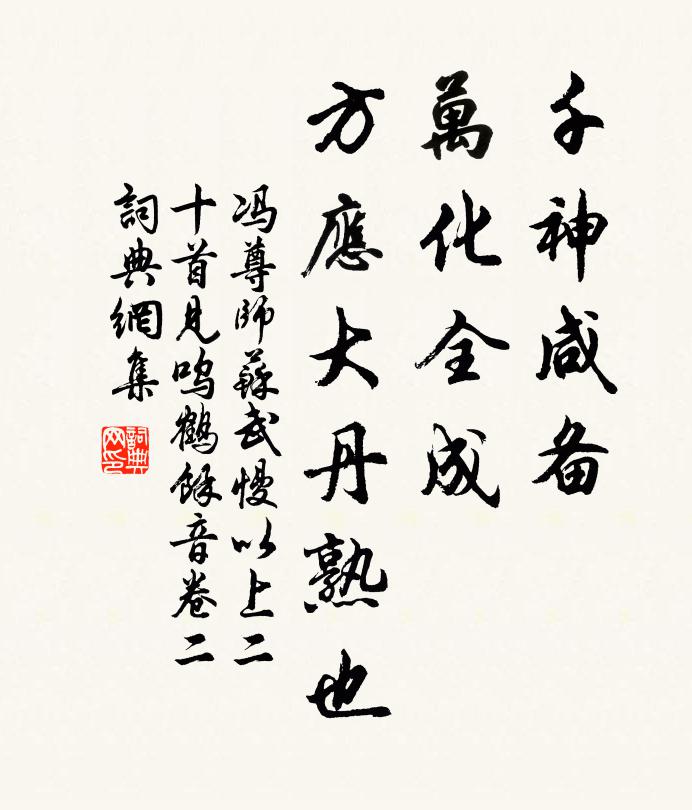 千神咸备
萬化全成
方應大丹熟也
冯尊師蘇武慢以上二
十首見鸣鹤餘音卷二
詞典網集
詞典网印